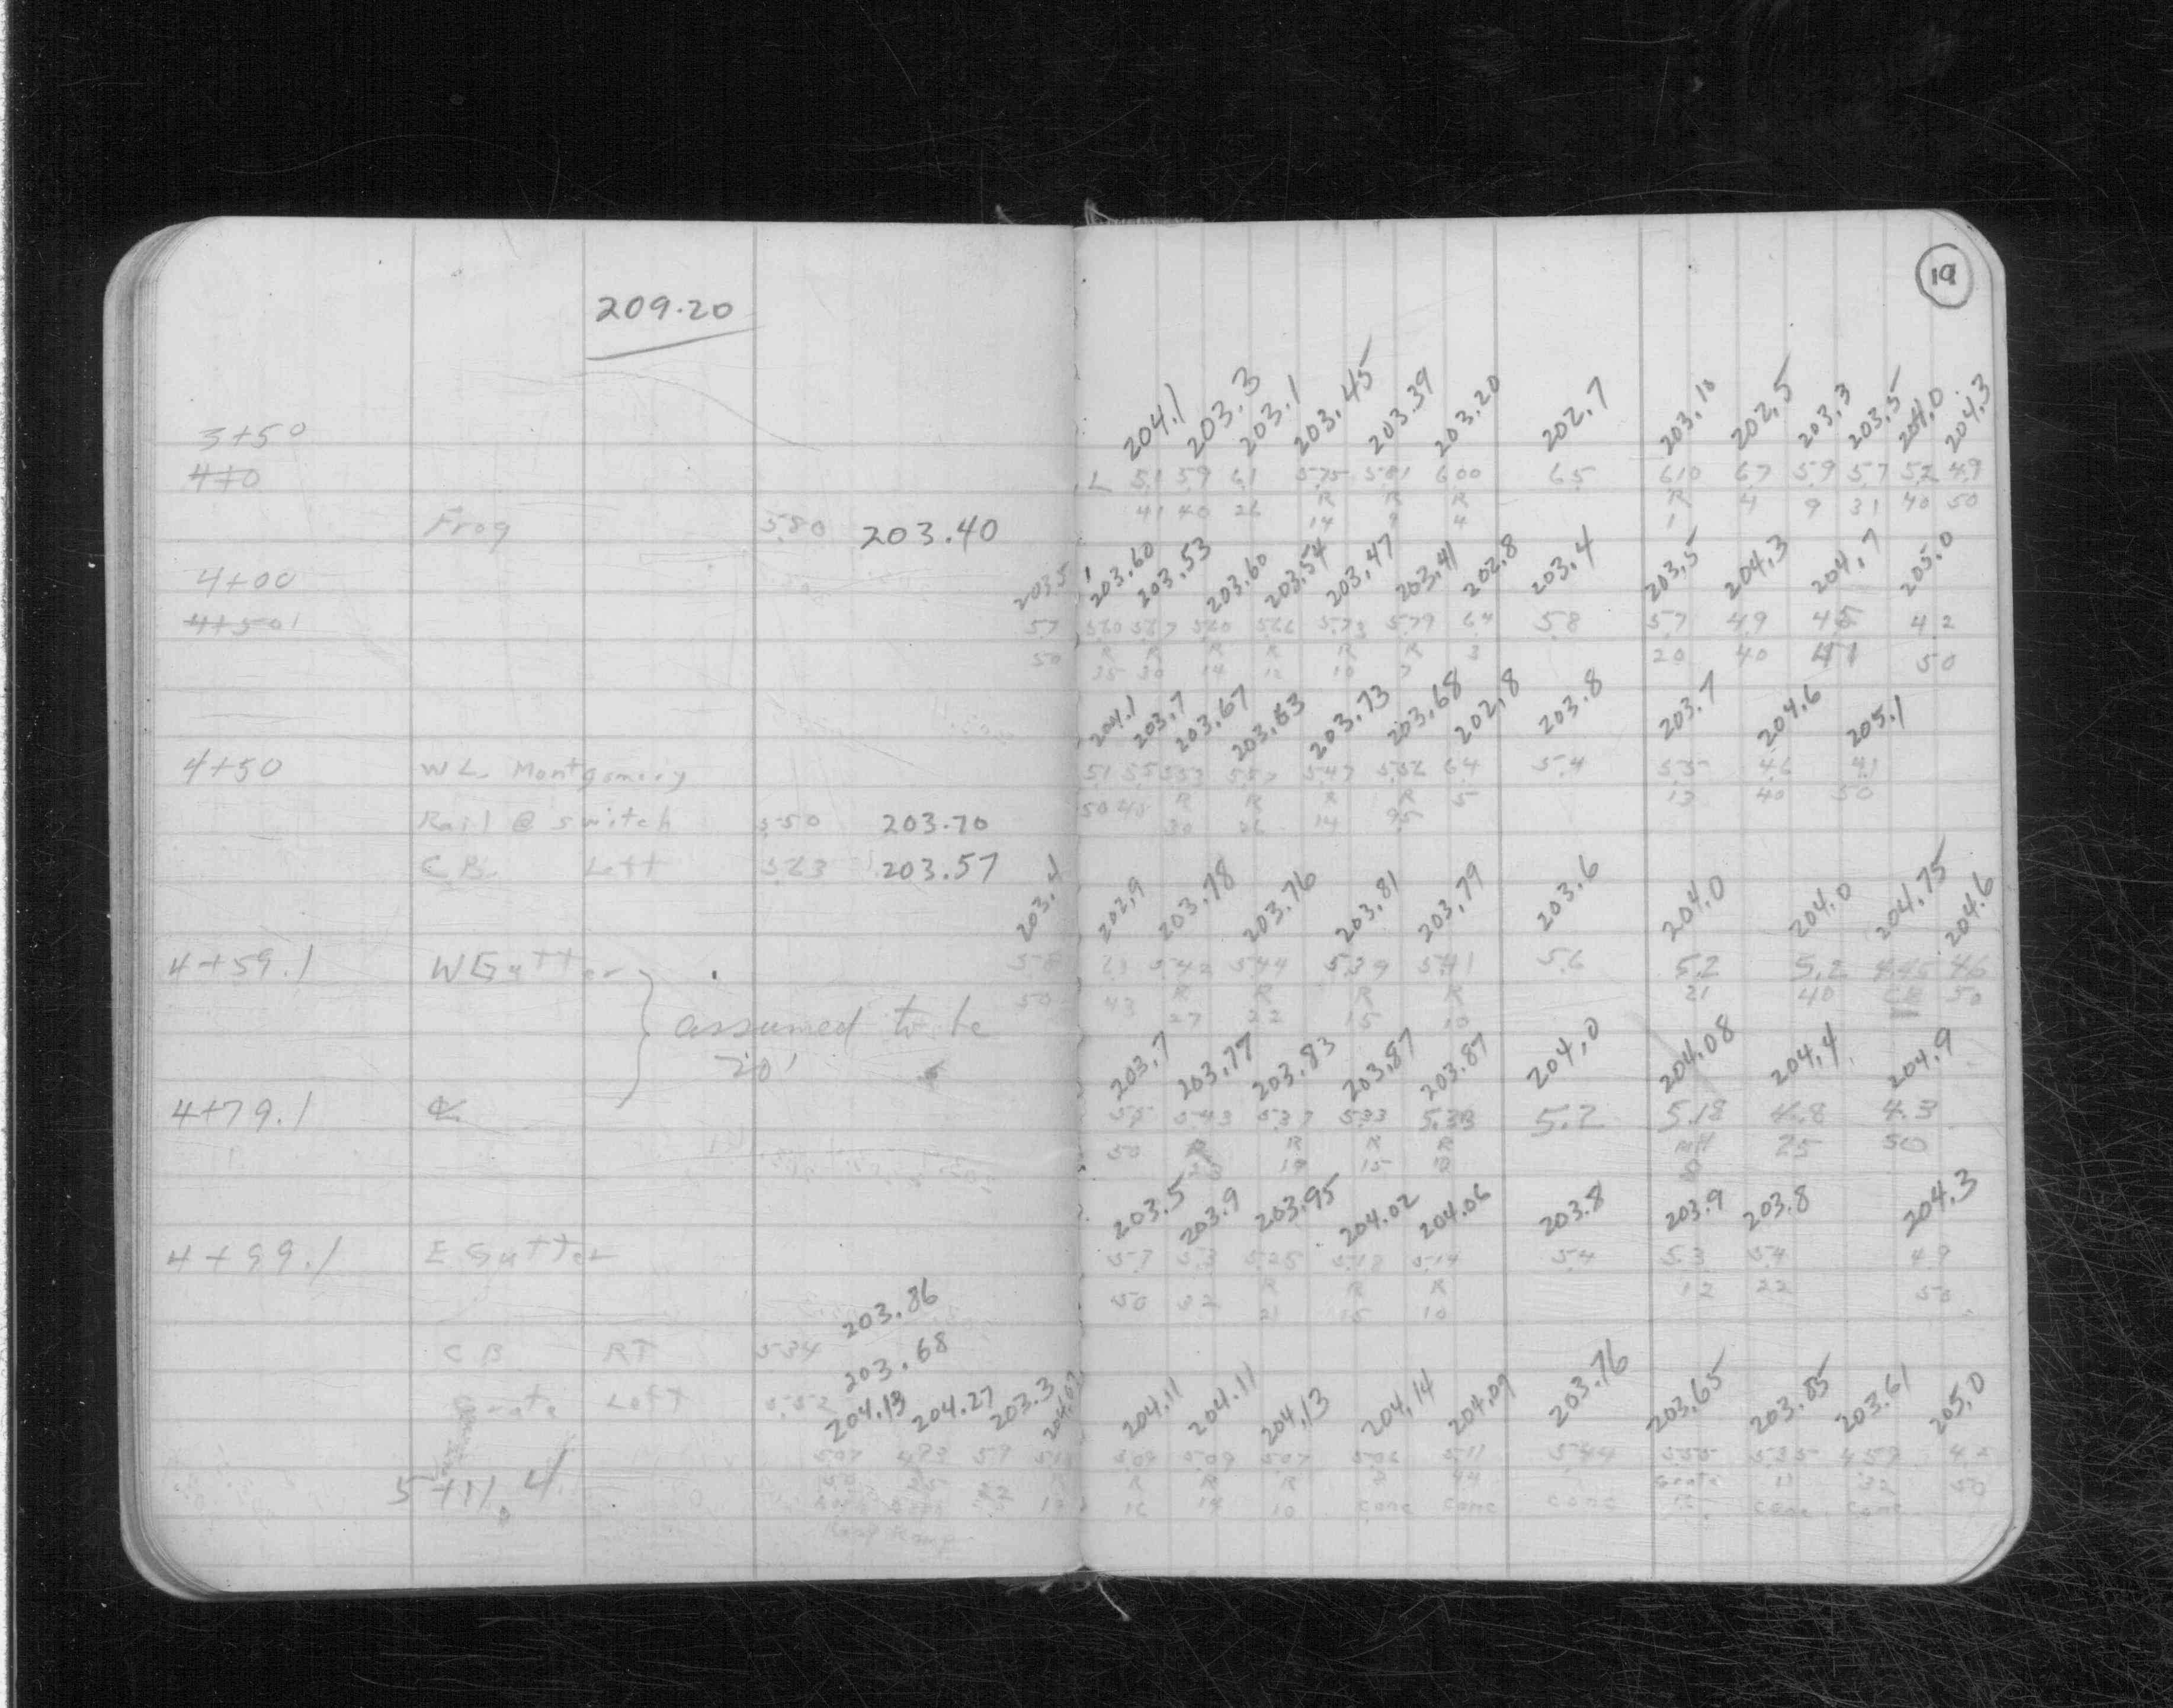 19
209.20
3+50
4+0
204.1 203.3 203.1 203.45 203.39 203.20 202.7 203.10 202.5 203.3 203.5 204.0 204.3
L 5.1 5.9 6.1 5.75 5.81 6.00 6.5 6.10 6.7 5.9 5.7 5.2 4.9
41 40 26 R 14 R 9 R 4 R 1 4 9 31 40 50
Frog 5.80 203.40
4+00
4+50
203.5 203.60 203.53 203.60 203.54 203.47 203.41 202.8 203.4 203.5 204.3 204.7 205.0
5.7 5.60 5.67 5.60 5.66 5.73 5.79 6.4 5.8 5.7 4.9 4.5 4.2
50 R 35 R 30 R 14 R 12 R 10 R 7 3 20 40 41 50
204.1 203.7 203.67 203.63 203.73 203.68 202.8 203.8 203.7 204.6 205.1
4+50 WL Montgomery
5.1 5.5 5.53 5.57 5.47 5.52 6.4 5.4 5.5 4.6 4.1
50 40 R 30 R 26 R 14 R 9.5 5 13 40 50
Rail @ switch 5.50 203.70
C.B. Left 5.63 203.57
203.4 202.9 203.78 203.76 203.81 203.79 203.6 204.0 204.0 204.75 204.6
4+59.1 W Gutter
5.8 6.3 5.42 5.44 5.39 5.41 5.6 5.2 5.2 4.45 4.6
50 43 R 27 R 22 R 15 R 10 21 40 CB 50
assumed to be
20'
203.7 203.77 203.83 203.87 203.87 204.0 204.08 204.4 204.9
4+79.1 ℄
5.5 5.43 5.37 5.33 5.33 5.2 5.18 4.8 4.3
50 R 23 R 19 R 15 R 10 MH 25 50
203.5 203.9 203.95 204.02 204.06 203.8 203.9 203.8 204.3
4+99.1 E Gutter
5.7 5.3 5.25 5.18 5.14 5.4 5.3 5.4 4.9
50 32 R 21 R 15 R 10 12 22 50
C B RT 5.34 203.86
Grate Left 5.52 203.68
204.13 204.27 203.3 204.11 204.11 204.13 204.14 204.09 203.76 203.65 203.85 203.61 205.0
5.07 4.93 5.9 5.09 5.09 5.07 5.06 5.11 5.44 5.55 5.35 4.2
5+11.4
R 16 R 14 R 10 conc conc conc Grate 11 conc 32 conc 50